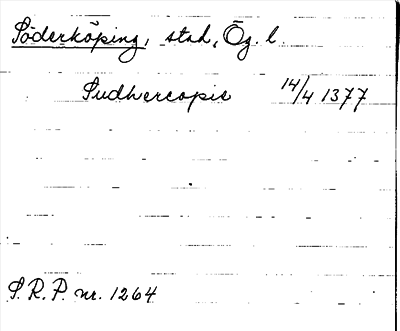 Söderköping, stad, Ög. l.
Sudhercopie 14/4 1377
S.R.P. nr. 1264